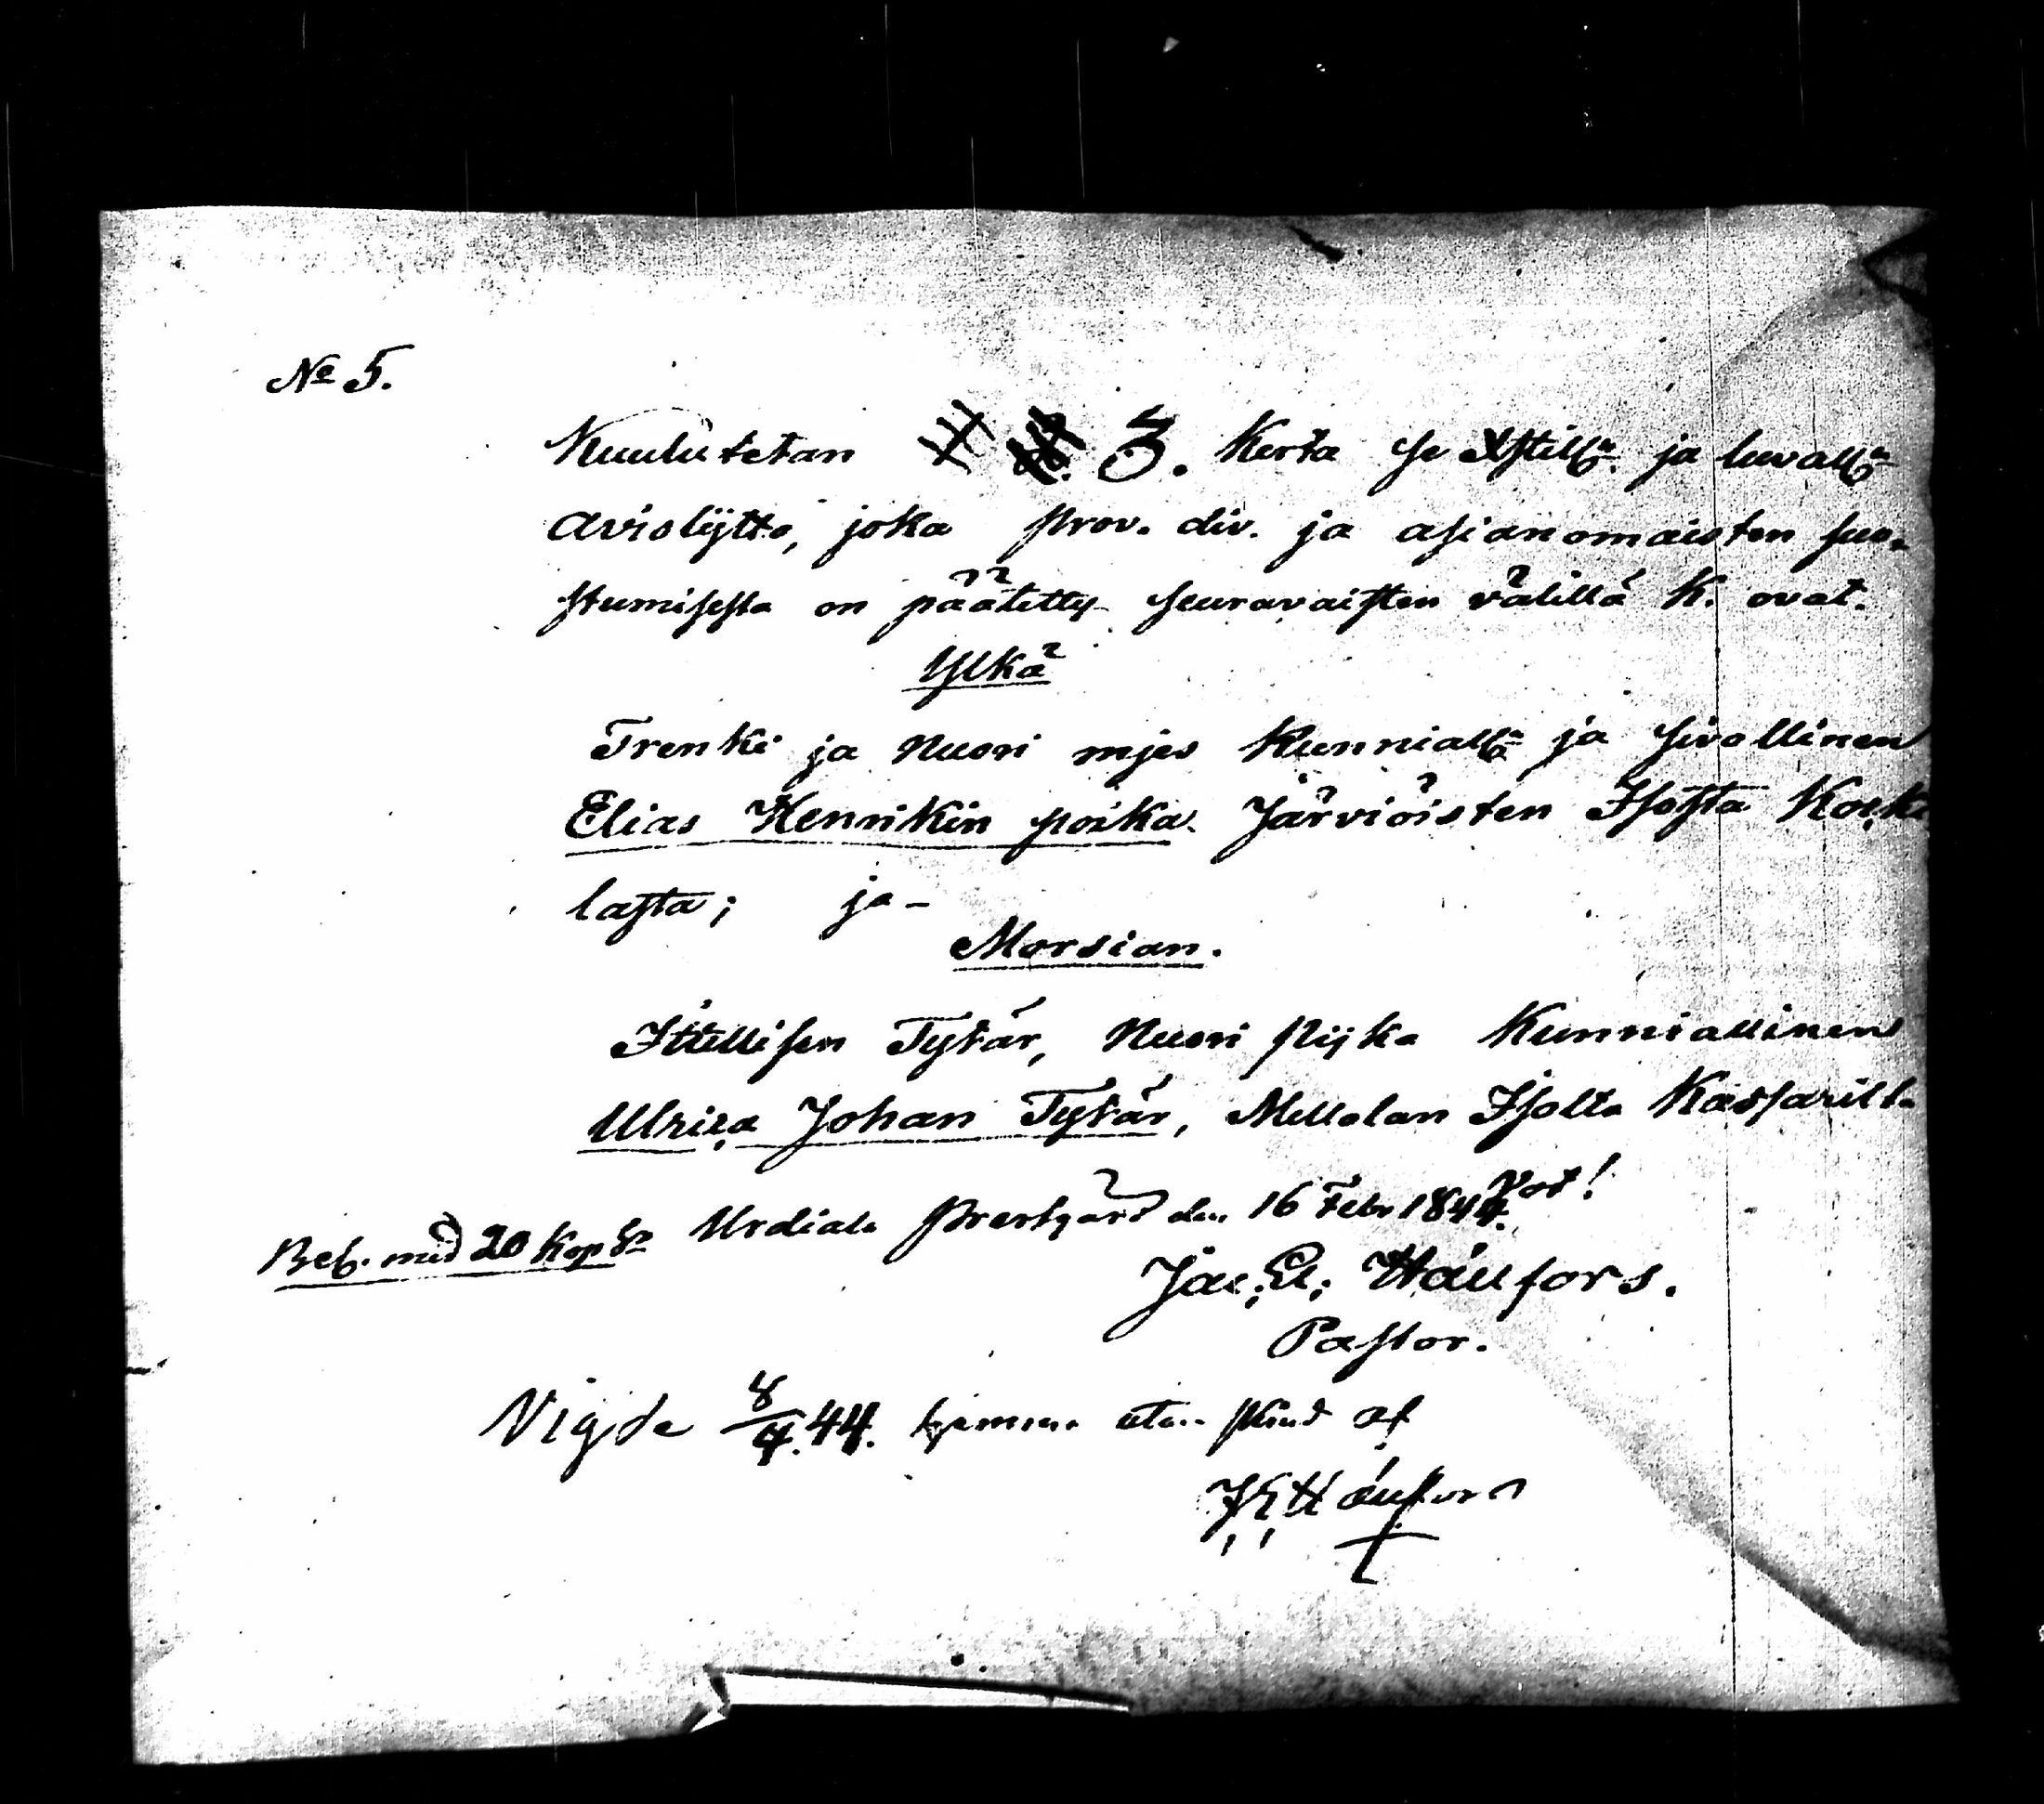 No 5.
Kuulutetan 3. Kerta se Xstill:n ja luvall:n
Avioliytto, joka prov. div. ja asianomaisten suo-
stumisesta on päätetty seuravaisten välillä K. ovat.
Ylkä
Trenki ja Nuori mjes Kunniall:n ja sivollinen
Elias Henrikin poika Järviöisten Isosta Koske
lasta; ja-
Morsian.
Ittellisen Tytär, Nuori Pijka Kunniallinen
Ulrica Johan Tytär, Mellolan Isolta Kasparilta
Vot!
Bef. med 20 Kop Sr Urdiala Prestgård den 16 Febr 1844.
Jac; El; Hällfors.
Pastor.
Vigde 8/4.44. hemma utan skrud af
J E Hällfors